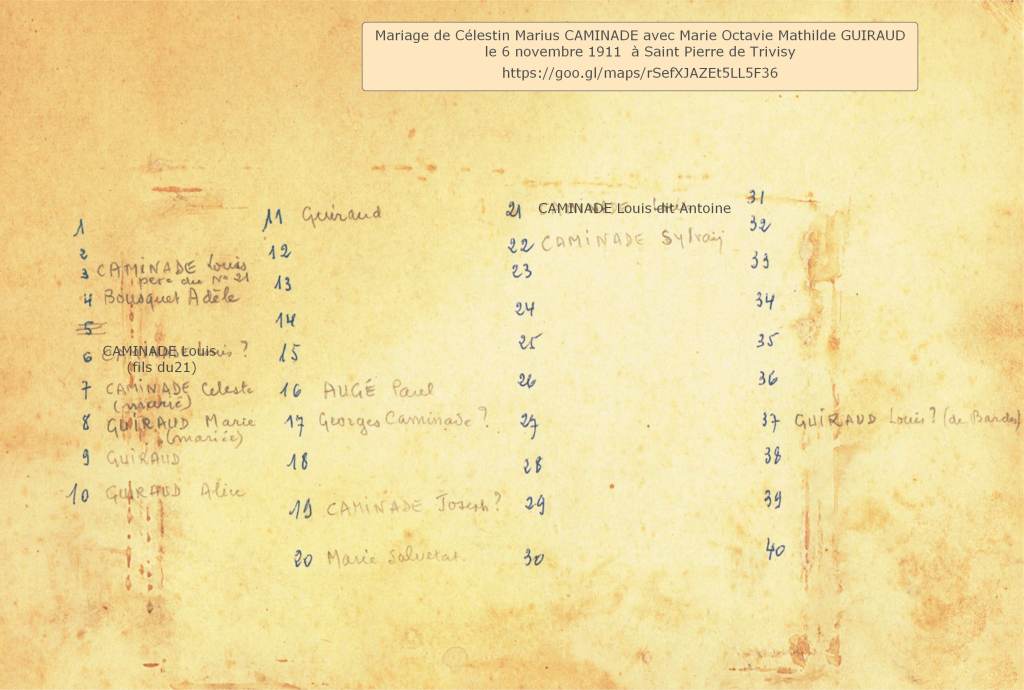 Mariage de Célestin Marius CAMINADE avec Marie Octavie Mathilde GUIRAUD
le 6 novembre 1911 à Saint Pierre de Trivisy
https://goo.gl/maps/rSefXJAZEt5LL5F36
1
2
3 CAMINADE Louis
père du N° 21
4 Bousquet Adèle
5
6 CAMINADE Louis ?
(fils du21)
7 CAMINADE Celeste
(marié)
8 GUIRAUD Marie
(mariée)
9 GUIRAUD
10 GUIRAUD Alice
11 Guiraud
12
13
14
15
16 AUGÉ Paul
17 Georges Caminade ?
18
19 CAMINADE Joseph ?
20 Marie Salvetat
21 CAMINADE Louis dit Antoine
22 CAMINADE Sylvain
23
24
25
26
27
28
29
30
31
32
33
34
35
36
37 GUIRAUD Louis ? (de Bardes)
38
39
40